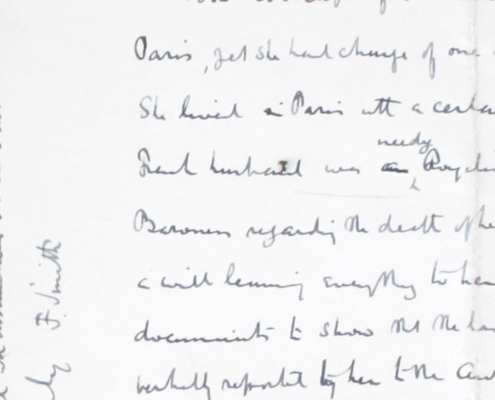 Paris, yet she had charge of one
She lived in Paris with a certa
needy
French husband was an
Baroness regarding the death of he
a will leaving everything to her
documents to show that the ha
verbally reported by her to the
by F. Smith